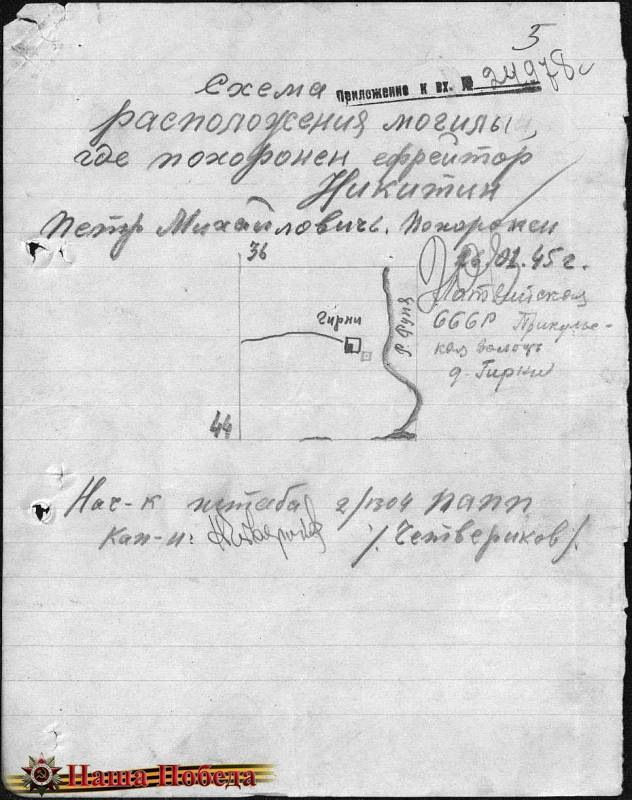 5
Приложение к вх. № 24978с
Схема
расположения могилы,
где похоронен ефрейтор
Никитин
Петр Михайловичь. Похоронен
26.01.45 г.
36
Латвийская
СССР Прикульс-
кая волость
д. Гирни
Гирни
р. Дуня
44
Нач-к штаба 2/1304 ПАПП
Кап-н:
/Четвериков/.
Наша Победа